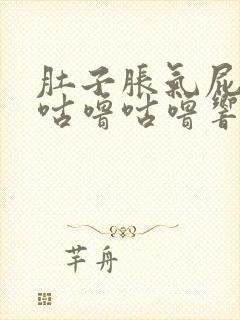 肚子脹氣屁
咕噜咕噜響
芊舟